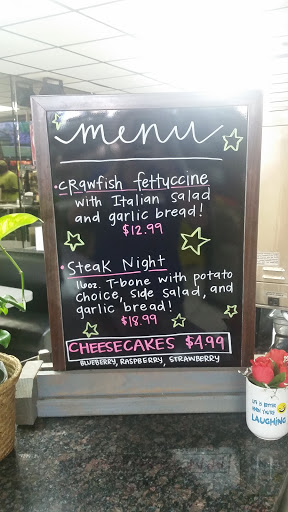 menu
• CRawfish fettuccine
with Italian salad
and garlic bread!
$12.99
• Steak Night
16oz. T-bone with potato
choice, side salad, and
garlic bread!
$18.99
CHEESECAKES $4.99
BLUEBERRY, RASPBERRY, STRAWBERRY
LIFE IS BETTER
WHEN YOU'RE
LAUGHING